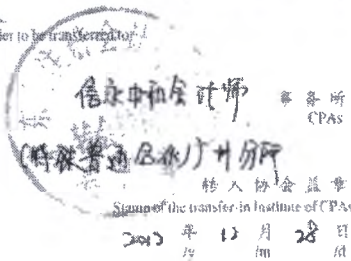 to be transferred to
信永中和会计师 事务所
CPAs
(特殊普通合伙)广州分所
转入协会盖章
Stamp of the transfer-in Institute of CPAs
2012 年 12 月 28 日
/y /m /d